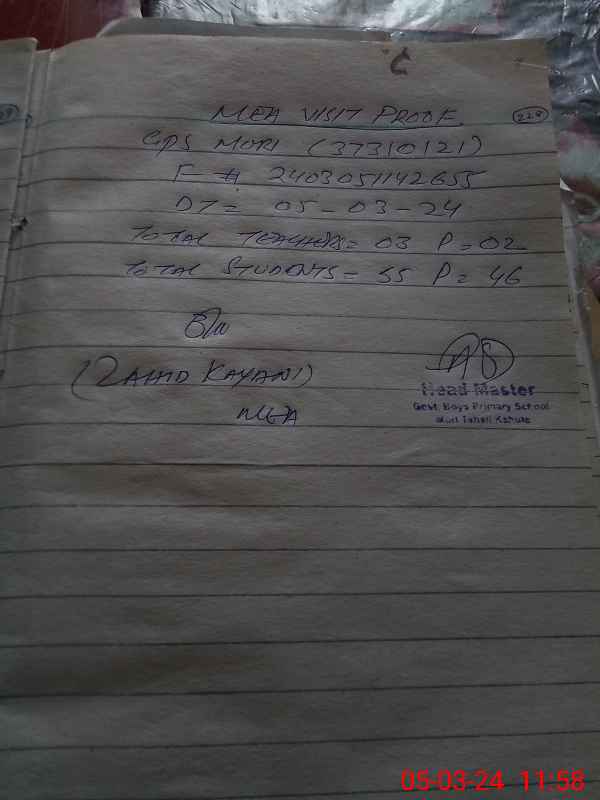 228
MEA VISIT PROOF
GPS MORI (37310121)
F # 2403051142655
DT = 05-03-24
TOTAL TEACHERS = 03 P = 02
TOTAL STUDENTS = 55 P = 46
(ZAHID KAYANI)
MEA
Head Master
Govt. Boys Primary School
Mori Tehsil Kahuta
05-03-24 11:58